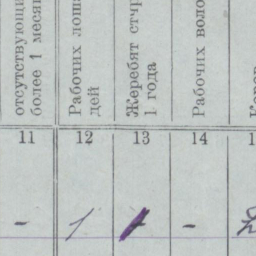 отсутствующи
более 1 месяц
Рабочих лоша
дей
Жеребят стар
1 года
Рабочих воло
11 12 13 14 1
- 1 -